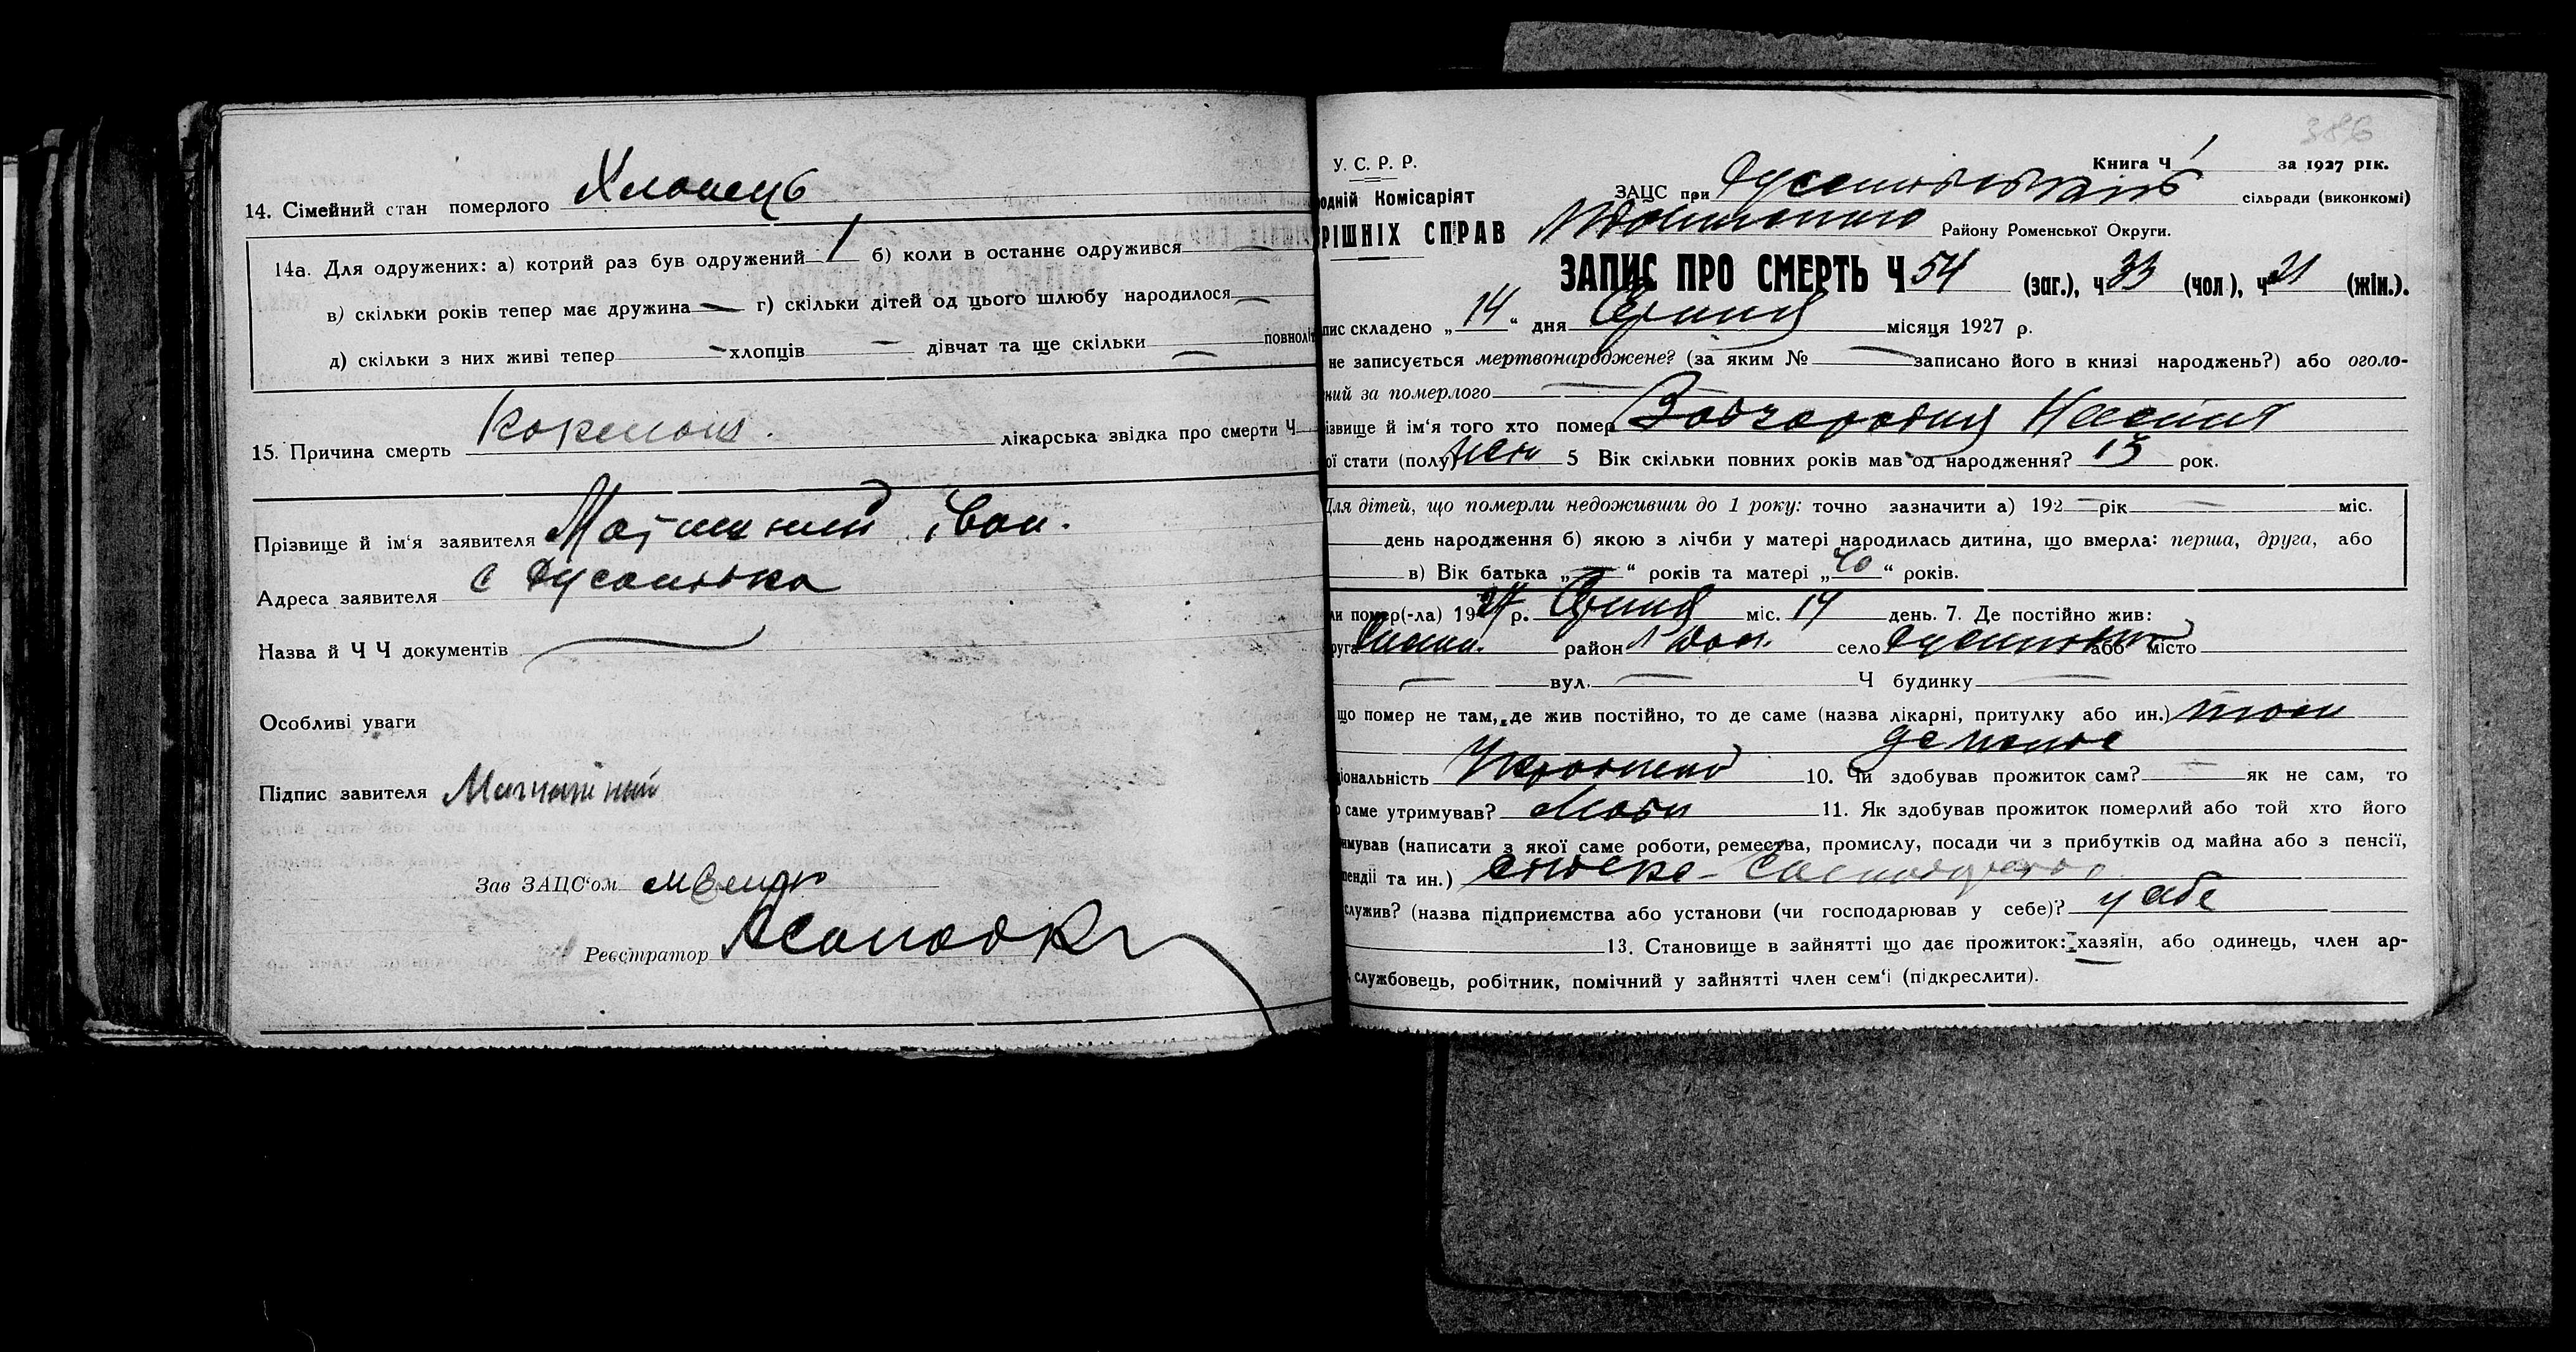 14. Сімейний стан померлого Хлопець
14а. Для одружених: а) котрий раз був одружений б) коли в останнє одружився
в) скільки років тепер має дружина г) скільки дітей од цього шлюбу народилося
д) скільки з них живі тепер хлопців дівчат та ще скільки повноліт
15. Причина смерть Коклюш. лікарська звідка про смерти Ч
Прізвище й ім'я заявителя Іван.
Адреса заявителя с
Назва й Ч Ч документів
Особливі уваги
Підпис завителя
Зав ЗАЦС'ом
Реєстратор
386
У. С. Р. Р. Книга Ч 1 за 1927 рік.
одній Комісаріят ЗАЦС при сільради (виконкомі)
РІШНІХ СПРАВ Району Роменської Округи.
ЗАПИС ПРО СМЕРТЬ Ч 54 (заг.), ч 33 (чол), ч 21 (жін.).
пис складено „14“ дня Серпня місяця 1927 р.
не записується мертвонароджене? (за яким № записано його в книзі народжень?) або оголо-
ний за померлого
ізвище й ім'я того хто помер Настя
ої стати (полу) жін 5 Вік скільки повних років мав од народження? 13 рок.
Для дітей, що померли недоживши до 1 року: точно зазначити а) 192 рік міс.
день народження б) якою з лічби у матері народилась дитина, що вмерла: перша, друга, або
в) Вік батька „ “ років та матері „40“ років.
ли помер(-ла) 1927 р. Серпня міс. 14 день. 7. Де постійно жив:
руга район село або місто
вул. Ч будинку
що помер не там, де жив постійно, то де саме (назва лікарні, притулку або ин.) там
де
іональність 10. Чи здобував прожиток сам? як не сам, то
о саме утримував? Мати 11. Як здобував прожиток померлий або той хто його
имував (написати з якої саме роботи, ремества, промислу, посади чи з прибутків од майна або з пенсії,
пендії та ин.)
служив? (назва підприємства або установи (чи господарював у себе)? у себе
13. Становище в зайнятті що дає прожиток: хазяін, або одинець, член ар-
службовець, робітник, помічний у зайнятті член сем'ї (підкреслити).